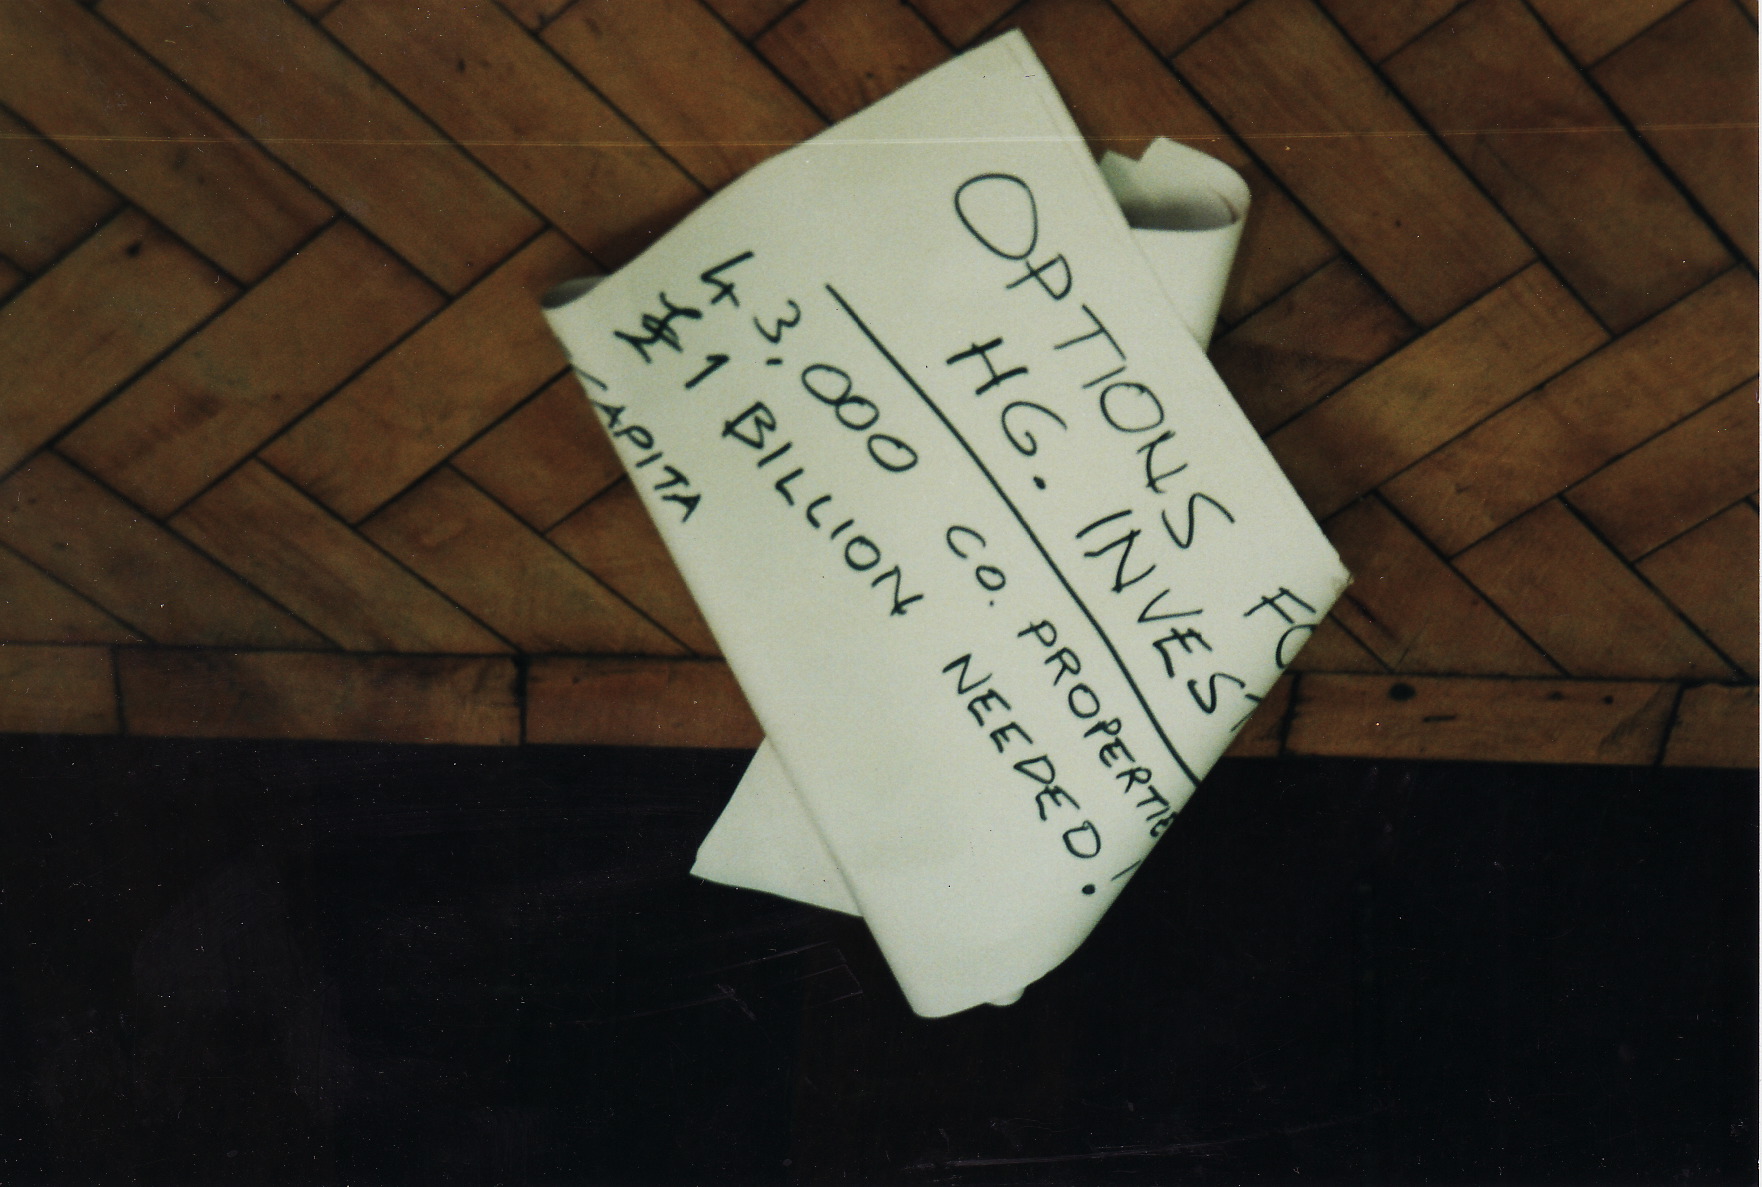 OPTIONS FO
HG. INVEST
43,000 CO. PROPERTIE
£1 BILLION NEEDED!
CAPITA